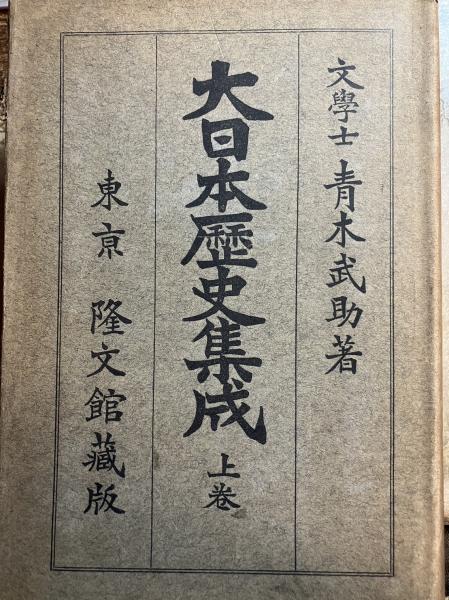 文學士 青木武助著
大日本歷史集成 上卷
東亰 隆文館藏版